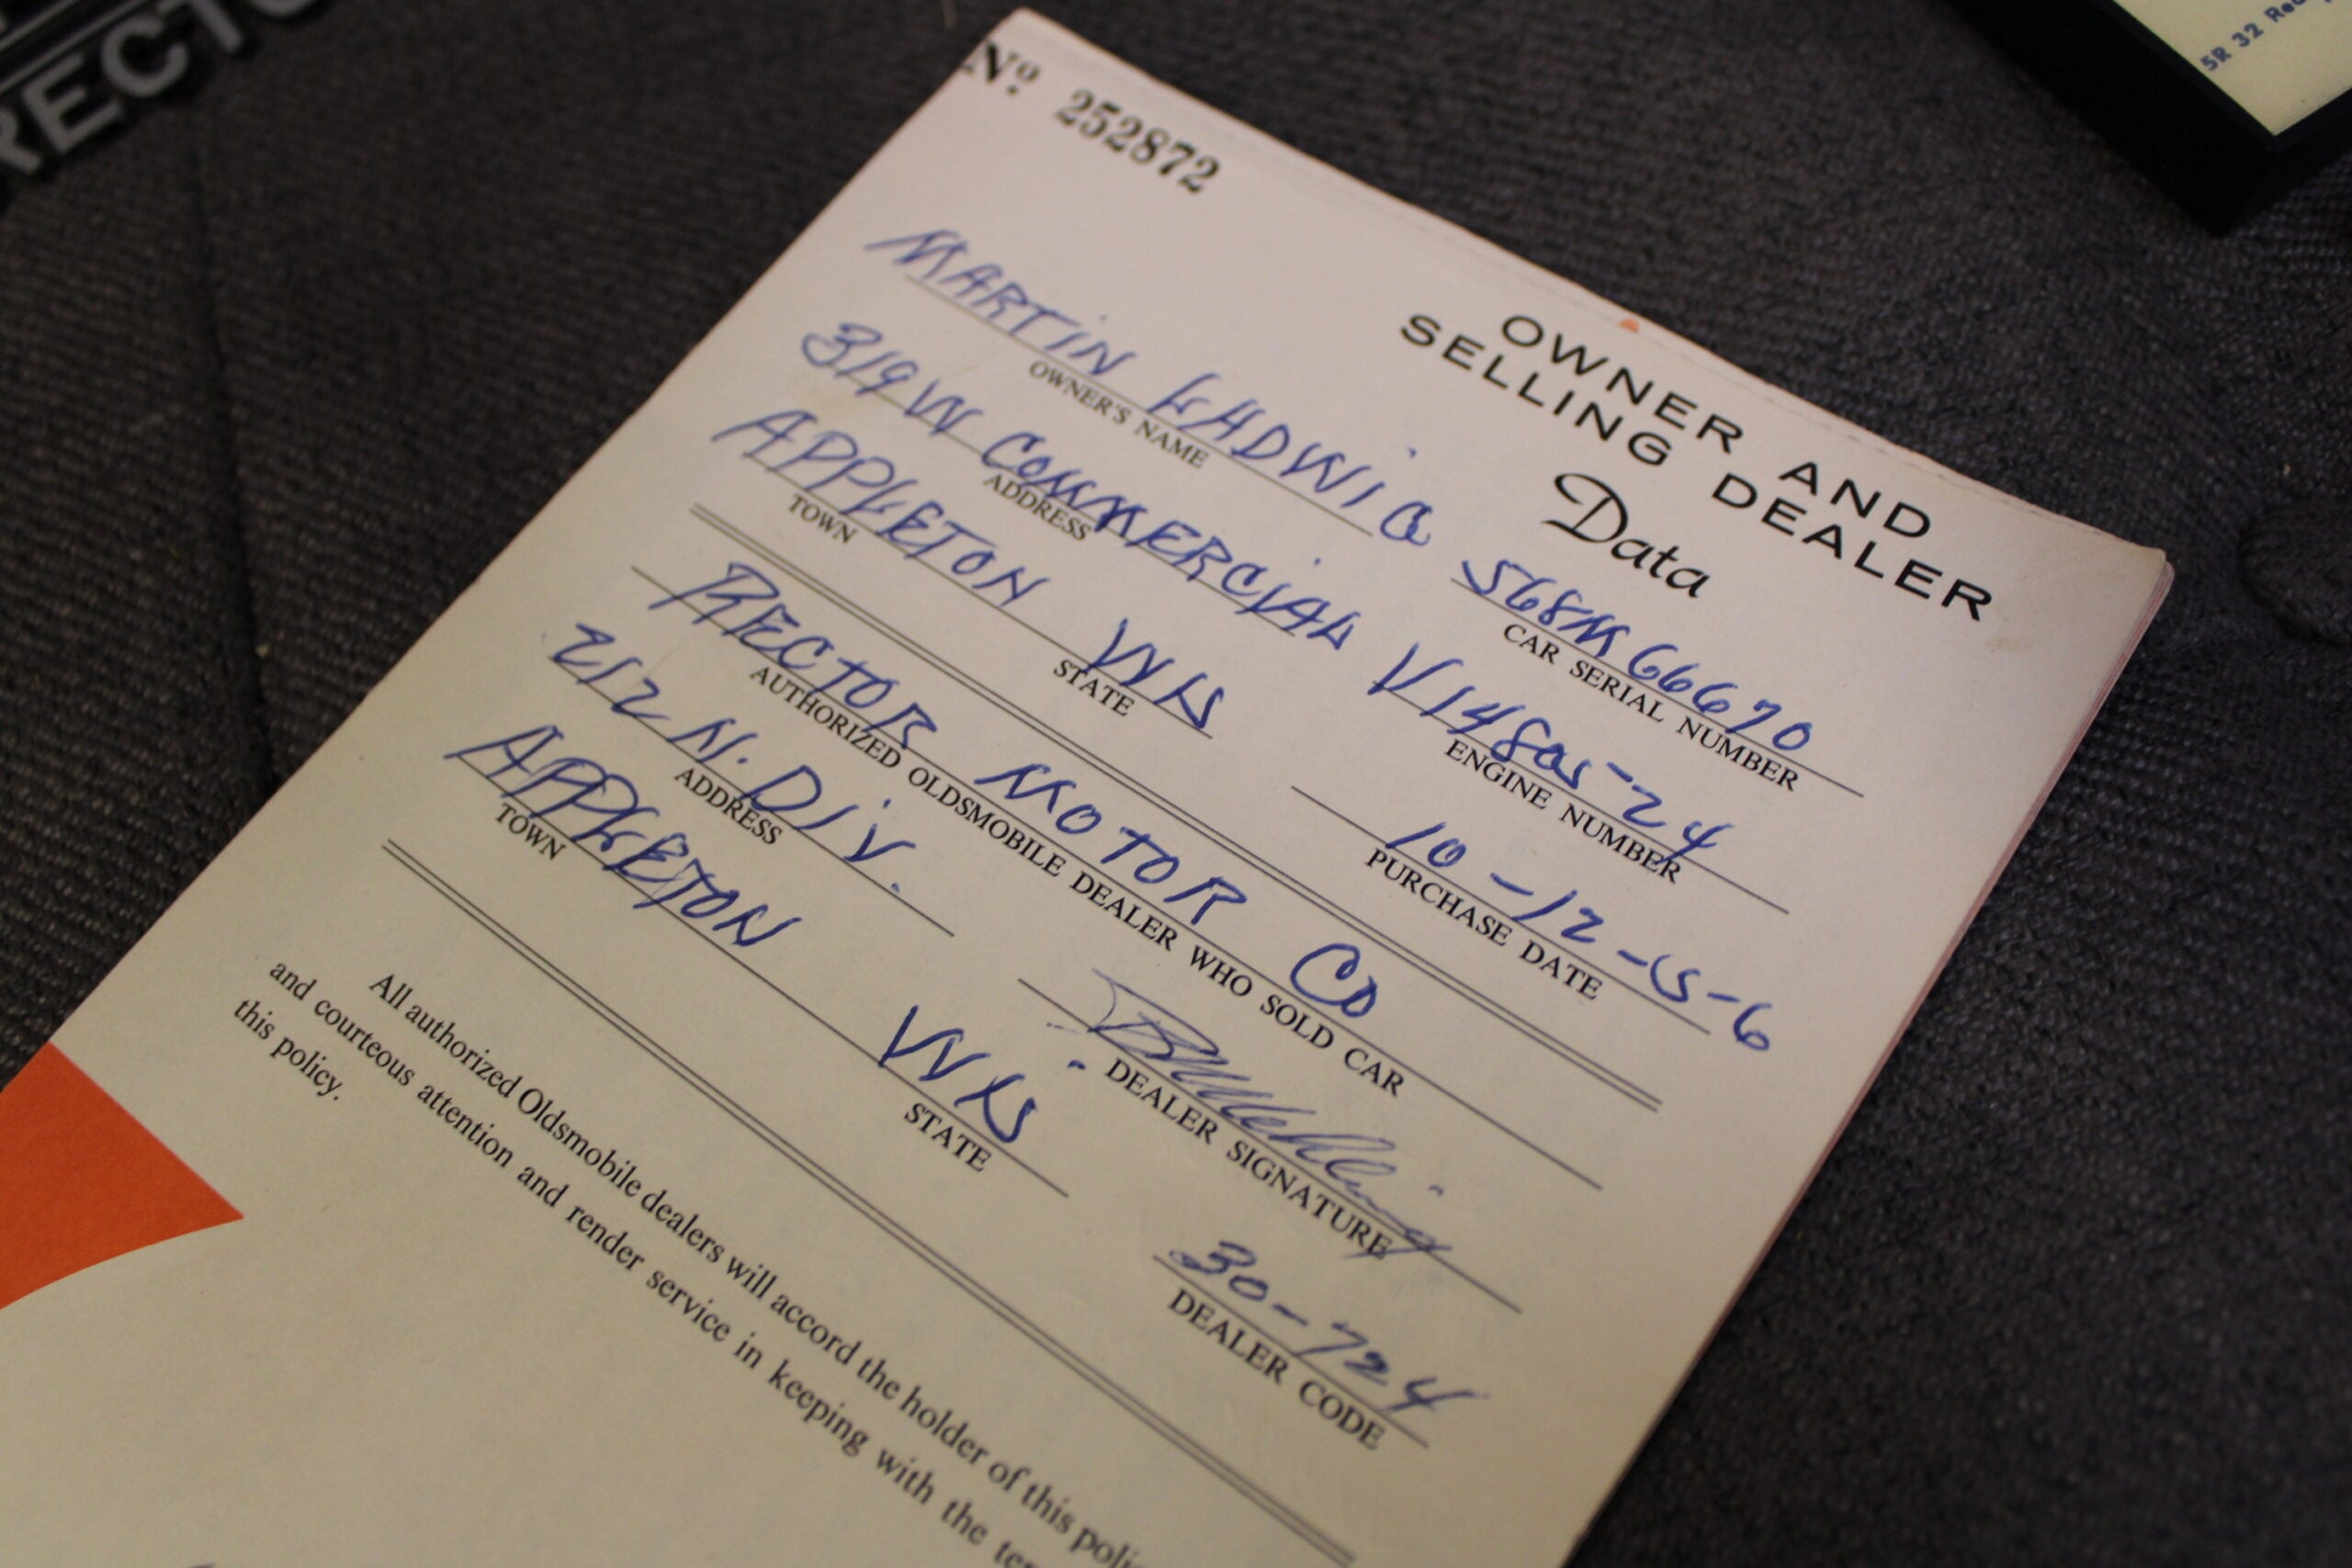 RECTO
5R 32
Nº 252872
OWNER AND
SELLING DEALER
Data
MARTiN LADWiG
OWNER'S NAME
568M66670
CAR SERIAL NUMBER
319 W COMMERCiAL
ADDRESS
V1480524
ENGINE NUMBER
APPLETON WIS
TOWN STATE
10-12-56
PURCHASE DATE
RECTOR MOTOR CO
AUTHORIZED OLDSMOBILE DEALER WHO SOLD CAR
212 N. DiV.
ADDRESS
DEALER SIGNATURE
APPLETON WIS
TOWN STATE
30-724
DEALER CODE
All authorized Oldsmobile dealers will accord the holder of this
and courteous attention and render service in keeping with the
this policy.